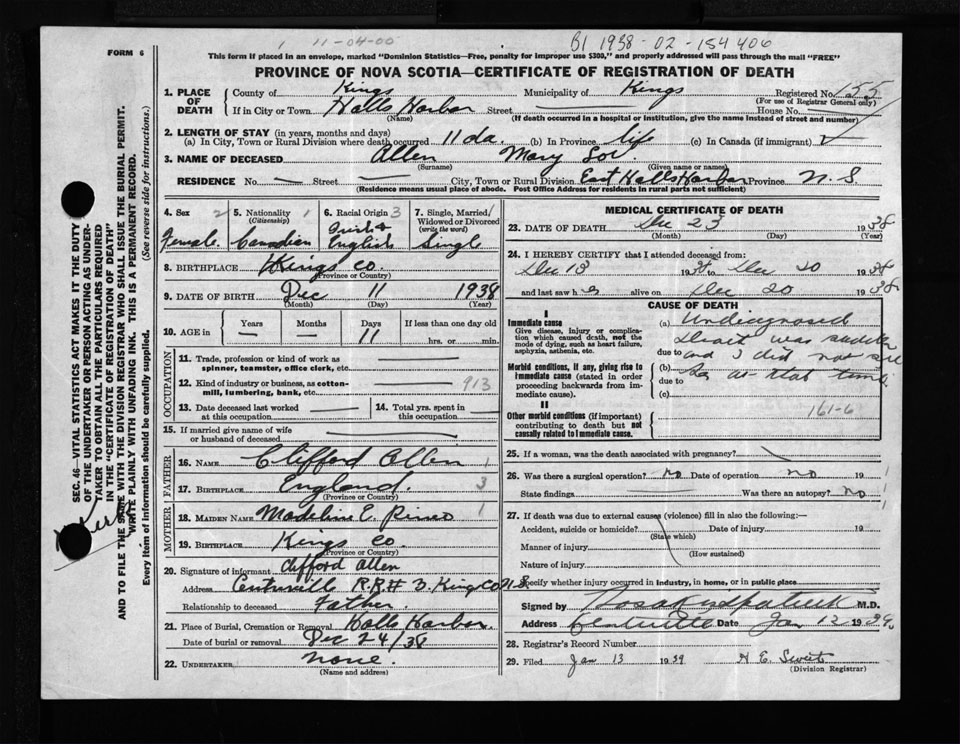 11-04-00
B1 1938-02-154406
FORM 6
This form if placed in an envelope, marked "Dominion Statistics—Free, penalty for improper use $300," and properly addressed will pass through the mail "FREE"
PROVINCE OF NOVA SCOTIA—CERTIFICATE OF REGISTRATION OF DEATH
1. PLACE OF DEATH County of Kings Municipality of Kings Registered No. 255
(For use of Registrar General only)
If in City or Town Halls Harbor Street — House No. —
(Name) (If death occurred in a hospital or institution, give the name instead of street and number)
2. LENGTH OF STAY (in years, months and days)
(a) In City, Town or Rural Division where death occurred 11 da. (b) In Province life (c) In Canada (if immigrant)
3. NAME OF DECEASED Allen Mary Lou
(Surname) (Given name or names)
RESIDENCE No. — Street — City, Town or Rural Division East Halls Harbor Province N.S.
(Residence means usual place of abode. Post Office Address for residents in rural parts not sufficient)
4. Sex 2 5. Nationality 1 6. Racial Origin 3 7. Single, Married, 1
(Citizenship) Widowed or Divorced
(write the word)
Female Canadian Irish & English Single
8. BIRTHPLACE Kings Co.
(Province or Country)
9. DATE OF BIRTH Dec 11 1938
(Month) (Day) (Year)
10. AGE in Years Months Days If less than one day old
— — 11 hrs. or min.
OCCUPATION
11. Trade, profession or kind of work as spinner, teamster, office clerk, etc.
12. Kind of industry or business, as cotton-mill, lumbering, bank, etc. 913
13. Date deceased last worked at this occupation — 14. Total yrs. spent in this occupation —
15. If married give name of wife or husband of deceased
FATHER
16. NAME Clifford Allen 1
17. BIRTHPLACE England. 3
(Province or Country)
MOTHER
18. MAIDEN NAME Madeline E. Pineo 1
19. BIRTHPLACE Kings Co.
(Province or Country)
20. Signature of informant Clifford Allen
Address Centreville R.R# 3. King Co N.S.
Relationship to deceased Father.
21. Place of Burial, Cremation or Removal Halls Harbor.
Date of burial or removal Dec 24/38
22. UNDERTAKER none.
(Name and address)
MEDICAL CERTIFICATE OF DEATH
23. DATE OF DEATH Dec 23 1938
(Month) (Day) (Year)
24. I HEREBY CERTIFY that I attended deceased from:
Dec 13 1938 to Dec 20 1938
and last saw her alive on Dec 20 1938
CAUSE OF DEATH
I
Immediate cause
Give disease, injury or complication which caused death, not the mode of dying, such as heart failure, asphyxia, asthenia, etc.
Morbid conditions, if any, giving rise to immediate cause (stated in order proceeding backwards from immediate cause).
II
Other morbid conditions (if important) contributing to death but not causally related to immediate cause.
(a) Undiagnosed
Death was sudden
due to and I did not see
(b) her at that time
due to
(c)
161-6
25. If a woman, was the death associated with pregnancy?
26. Was there a surgical operation? No Date of operation no 19
State findings Was there an autopsy? No
27. If death was due to external causes (violence) fill in also the following:—
Accident, suicide or homicide? Date of injury 19
(State which)
Manner of injury
(How sustained)
Nature of injury
Specify whether injury occurred in industry, in home, or in public place
Signed by M.D.
Address Centreville Date Jan 12 1939
28. Registrar's Record Number
29. Filed Jan 13 1939 H E. Sweet
(Division Registrar)
SEC. 46—VITAL STATISTICS ACT MAKES IT THE DUTY
OF THE UNDERTAKER OR PERSON ACTING AS UNDER-
TAKER TO OBTAIN ALL THE PARTICULARS REQUIRED
IN THE "CERTIFICATE OF REGISTRATION OF DEATH"
AND TO FILE THE SAME WITH THE DIVISION REGISTRAR WHO SHALL ISSUE THE BURIAL PERMIT.
WRITE PLAINLY WITH UNFADING INK. THIS IS A PERMANENT RECORD.
Every item of information should be carefully supplied. (See reverse side for instructions.)